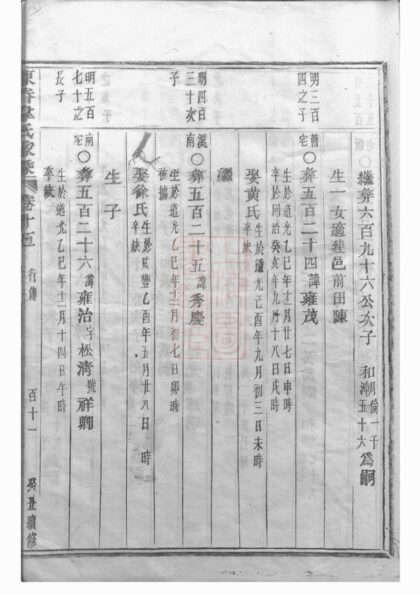 繼彝六百九十六公次子 和潮倫一千五十六為嗣
生一女適建邑前田陳
明三百四之子
舊宅
○彝五百二十四諱雍茂
生於道光乙巳年十一月廿七日申時
卒於同治癸亥年九月十八日戌時
娶黃氏生於道光己酉年九月初三日未時
卒缺
繼
明四百三十次子
溪南
○彝五百二十五諱秀慶
生於道光乙巳年十二月初七日卯時
娶徐氏生於咸豐乙酉年五月廿八日 時
卒缺
生子
明五百七十之長子
南宅
○彝五百二十六諱雍治字松清號祥卿
生於道光乙巳年十二月十四日午時
卒缺
氏家乘 卷十五 行傳 百十一 癸丑續修